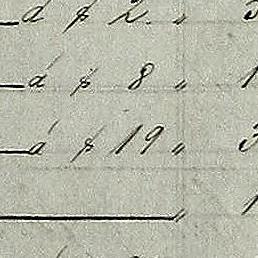 á $ 2. "
á $ 8 " 1
á $ 19 " 3
" 1